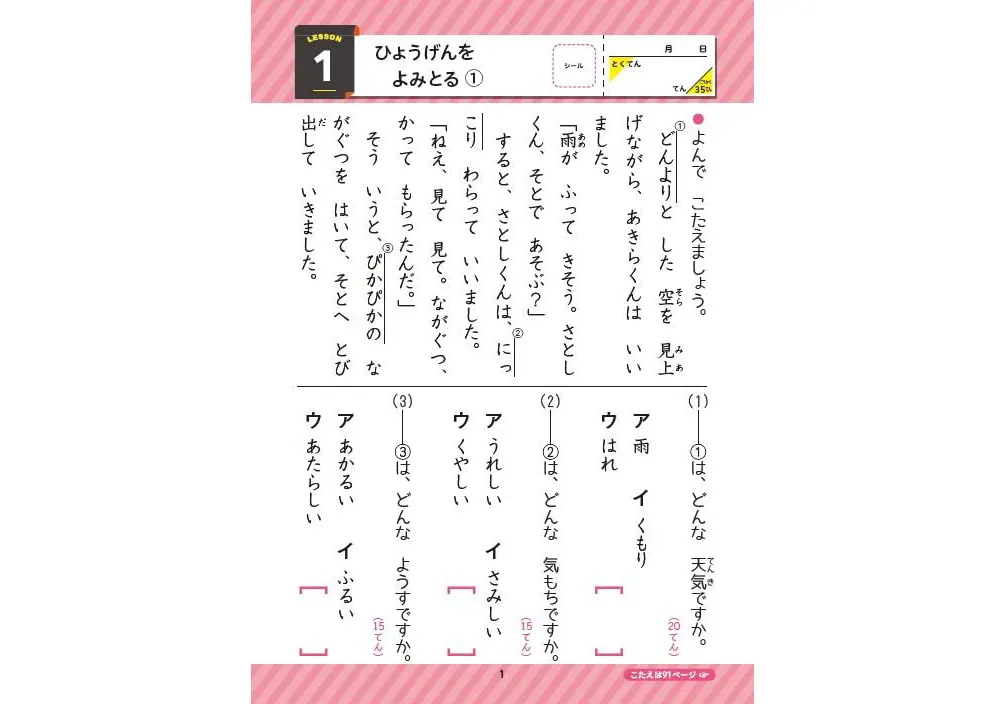 LESSON
1
ひょうげんを
よみとる ①
シール
月 日
とくてん
てん
ごうかく
35てん
● よんで こたえましょう。
①どんよりと した 空を 見上
げながら、あきらくんは いい
ました。
「雨が ふって きそう。さとし
くん、そとで あそぶ?」
すると、さとしくんは、②にっ
こり わらって いいました。
「ねえ、見て 見て。ながぐつ、
かって もらったんだ。」
そう いうと、③ぴかぴかの な
がぐつを はいて、そとへ とび
出して いきました。
(1) ①は、どんな 天気ですか。
(20てん)
ア 雨 イ くもり
ウ はれ
[ ]
(2) ②は、どんな 気もちですか。
(15てん)
ア うれしい イ さみしい
ウ くやしい
[ ]
(3) ③は、どんな ようすですか。
(15てん)
ア あかるい イ ふるい
ウ あたらしい
[ ]
1
こたえは91ページ